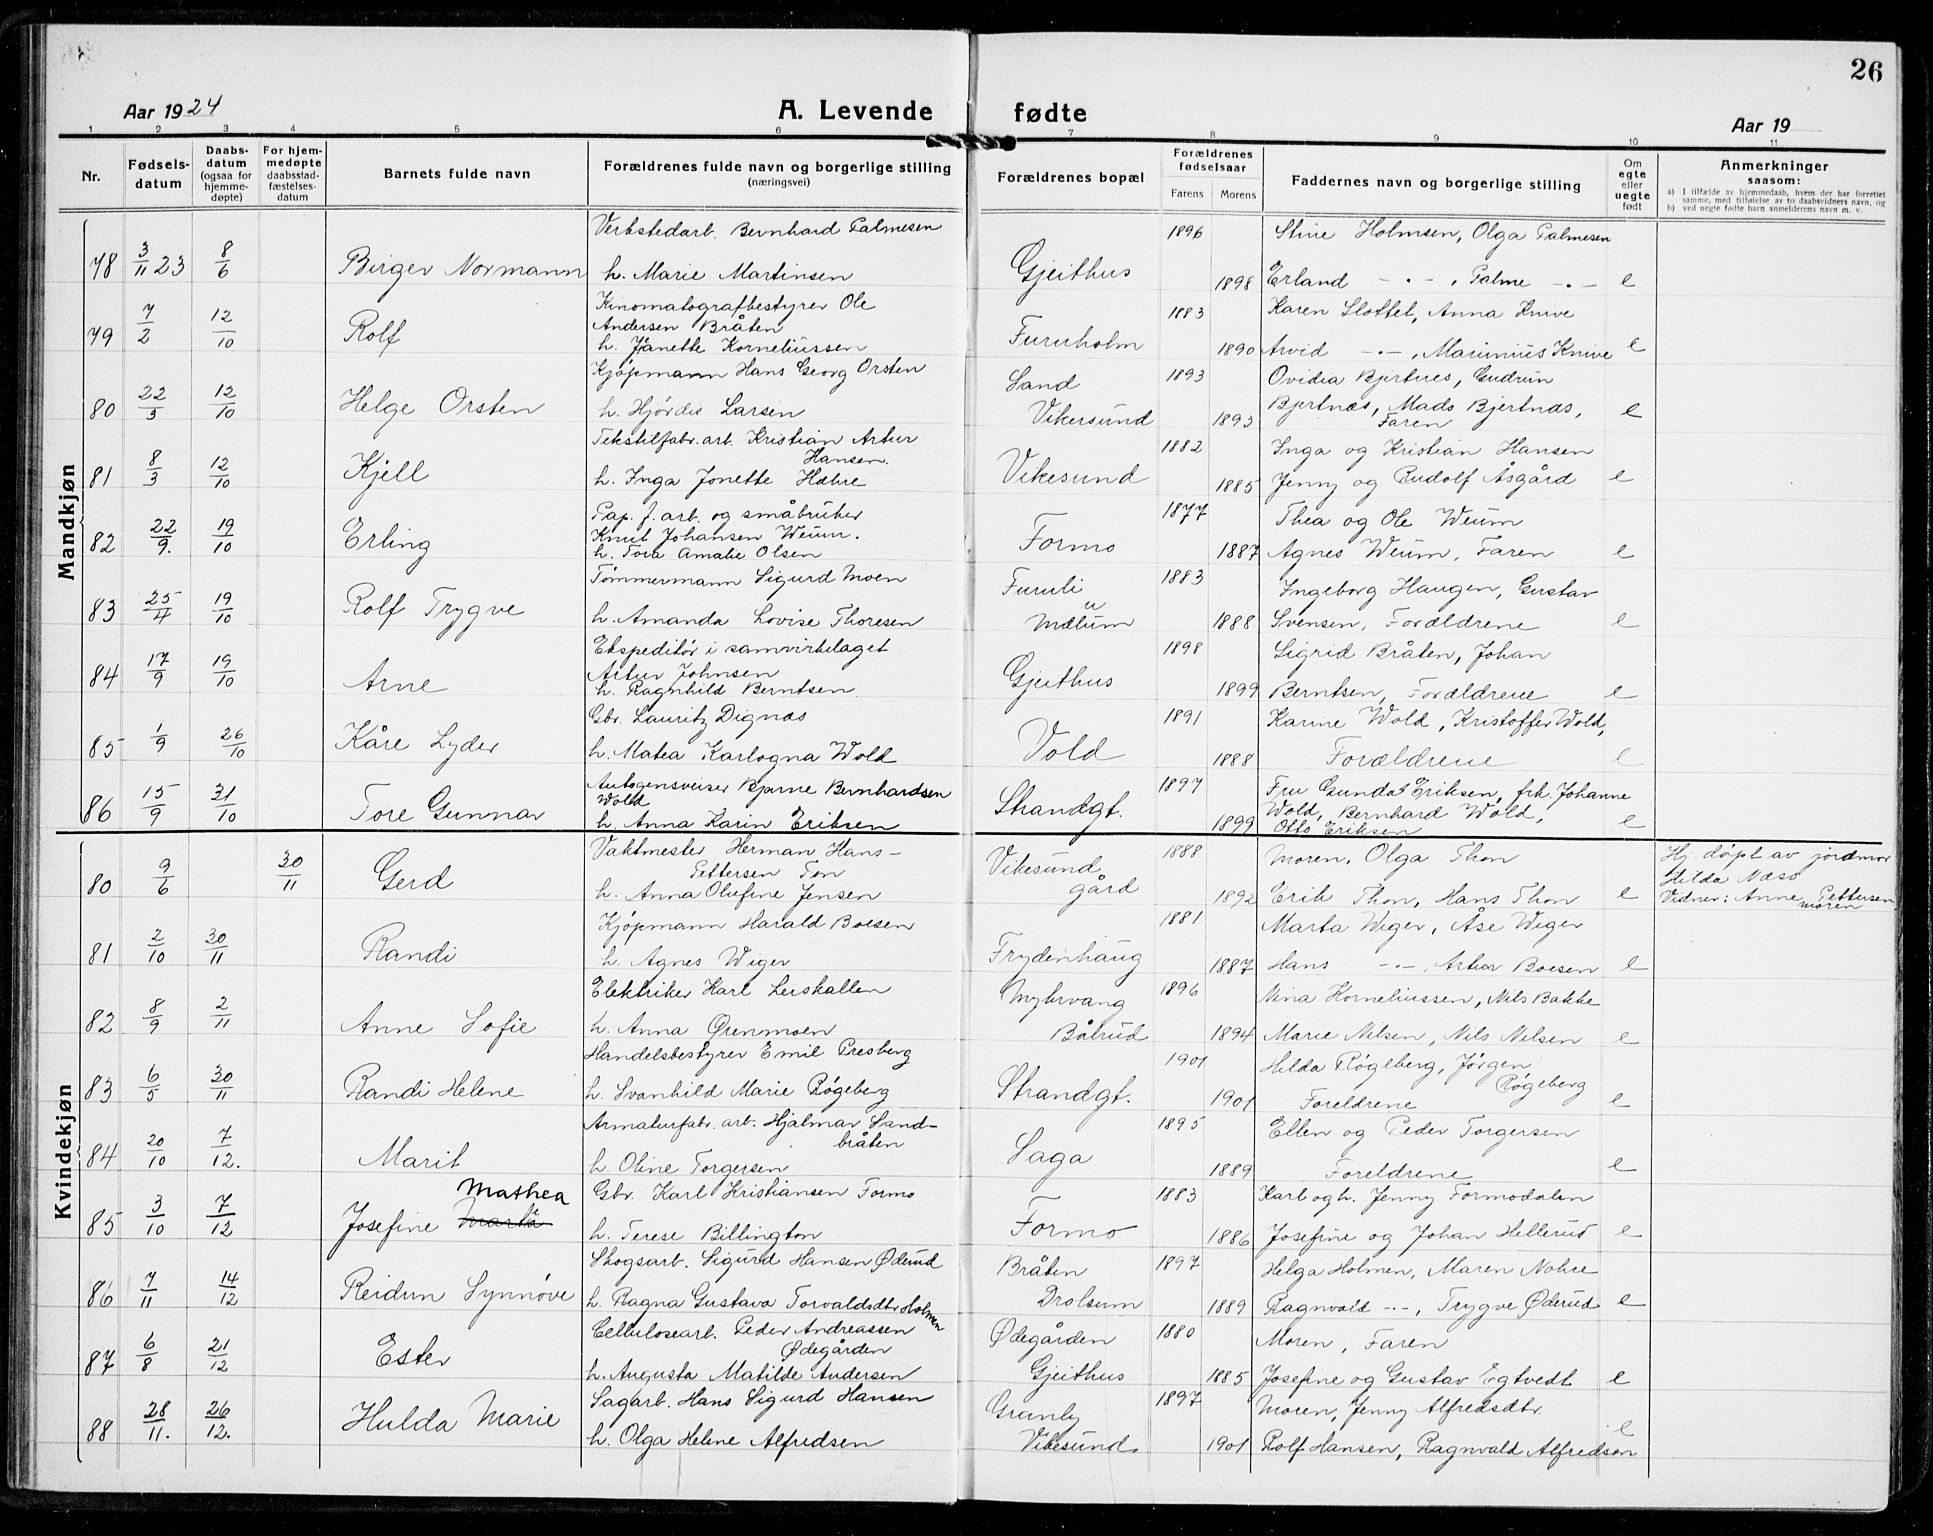 26
Aar 1924
A. Levende fødte
Aar 19
1 2 3 4 5 6 7 8 9 10 11
Nr.
Fødselsdatum
Daabsdatum (ogsaa for hjemmedøpte)
For hjemmedøpte daabsstadfæstelsesdatum
Barnets fulde navn
Forældrenes fulde navn og borgerlige stilling (næringsvei)
Forældrenes bopæl
Forældrenes fødselsaar
Farens Morens
Faddernes navn og borgerlige stilling
Om egte eller uegte født
Anmerkninger saasom:
a) I tilfælde av hjemmedaab, hvem der har forrettet samme, med tilføielse av to daabsvidners navn, og
b) ved uegte fødte barn anmelderens navn m. v.
Mandkjøn
Verkstedarb. Bernhard Palmesen 1896 Stine Holmsen, Olga Palmesen
78 3/11 23 8/6 Birger Normann h. Marie Martinsen Gjeithus 1898 Erland -"-, Palme -"- e
Kinomatografbestyrer Ole 1883 Karen Slottel, Anna Knive
79 7/2 12/10 Rolf Andersen Bråten Furuholm
h. Janette Korneliussen 1890 Arvid -"-, Marinius Knive e
Kjøpmann Hans Georg Orsten Sand 1893 Ovidia Bjertnes, Gudrun
80 22/3 12/10 Helge Orsten h. Hjørdis Larsen Vikersund 1893 Bjertnæs, Mads Bjertnæs, e
Faren
Tekstilfabr. arb. Kristian Artur 1882 Inga og Kristian Hansen
Hansen.
81 8/3 12/10 Kjell h. Inga Jonette Hæhre Vikesund 1885 Jenny og Rudolf Åsgård e
Pap. f. arb. og småbruker 1877 Thea og Ole Weum
82 22/9. 19/10 Erling Knut Johansen Weum. Formo
h. Tora Amalie Olsen 1887 Agnes Weum, Faren e
Tømmermann Sigurd Moen Furuli 1883 Ingeborg Haugen, Gustav
83 25/4 19/10 Rolf Trygve h. Amanda Lovise Thoresen u Mælum 1888 Svensen, Forældrene e
Ekspeditør i samvirkelaget 1898 Sigrid Bråten, Johan
84 17/9 19/10 Arne Artur Johnsen Gjeithus
h. Ragnhild Berntsen 1899 Berntsen, Forældrene e
Gbr. Lauritz Dignæs 1891 Karine Wold, Kristoffer Wold,
85 1/9 26/10 Kåre Lyder h. Matea Karlogna Wold Vold 1888 Forældrene e
Autogensveiser Bjarne Bernhardsen 1897 Fru Gunda Eriksen, frk. Johanne
86 15/9 31/10 Tore Gunnar Wold Strandgt. Wold, Bernhard Wold,
h. Anna Karin Eriksen 1899 Otto Eriksen e
Kvindekjøn
Vaktmester Herman Hans- Vikesund 1888 Moren, Olga Thon Hj. døpt av jordmor
80 9/6 30/11 Gerd Pettersen Ton gård Hilda Næss
h. Anna Olufine Jensen 1892 Erik Thon, Hans Thon e Vidner: Anne Pettersen
moren
Kjøpmann Harald Boesen 1881 Marta Wiger, Åse Wiger
81 2/10 30/11 Randi h. Agnes Wiger Frydenhaug 1887 Hans -"-, Artur Boesen e
Elektriker Karl Leiskallen Myhrvang 1896 Nina Korneliussen, Nils Bakke
82 8/9 2/11 Anne Sofie h. Anna Ørenmoen Bålrud 1894 Marie Nilsen, Nils Nilsen e
Handelsbestyrer Emil Presberg 1901 Hilda Røgeberg, Jørgen
Røgeberg
83 6/5 30/11 Randi Helene h. Svanhild Marie Røgeberg Strandgt. 1901 Foreldrene e
Armaturfabr. arb. Hjalmar Sand- 1895 Ellen og Peder Torgersen
bråten
84 20/10 7/12. Marit h. Oline Torgersen Saga 1889 Foreldrene e
Mathea Gbr. Karl Kristiansen Formo 1883 Karl og h. Jenny Formodalen
85 3/10 7/12 Josefine h. Terese Billington Formo 1886 Josefine og Johan Hellerud e
Skogsarb. Sigurd Hansen Øderud Bråten 1897 Helga Holmen, Maren Nohre
86 7/11 14/12 Reidun Synnøve h. Ragna Gustava Torvaldsdtr Holmen Drolsum 1889 Ragnvald -"-, Trygve Øderud e
Cellulosearb. Peder Andreassen Ødegården 1880 Moren, Faren
87 6/8 21/12 Ester Ødegården
h. Augusta Matilde Andersen Gjeithus 1885 Josefine og Gustav Egtvedt e
Sagarb. Hans Sigurd Hansen Granly 1897 Moren, Jenny Alfredsdtr.
88 28/11. 26/12. Hulda Marie h. Olga Helene Alfredsen Vikesund 1901 Rolf Hansen, Ragnvald Alfredsen e